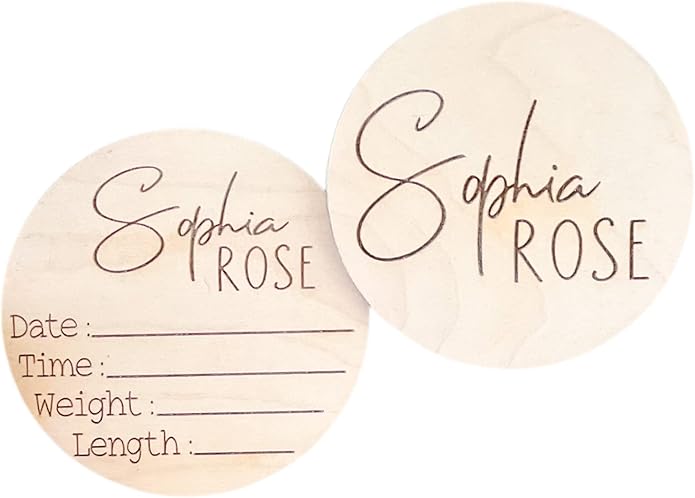 Sophia
ROSE
Date:
Time:
Weight:
Length:
Sophia
ROSE